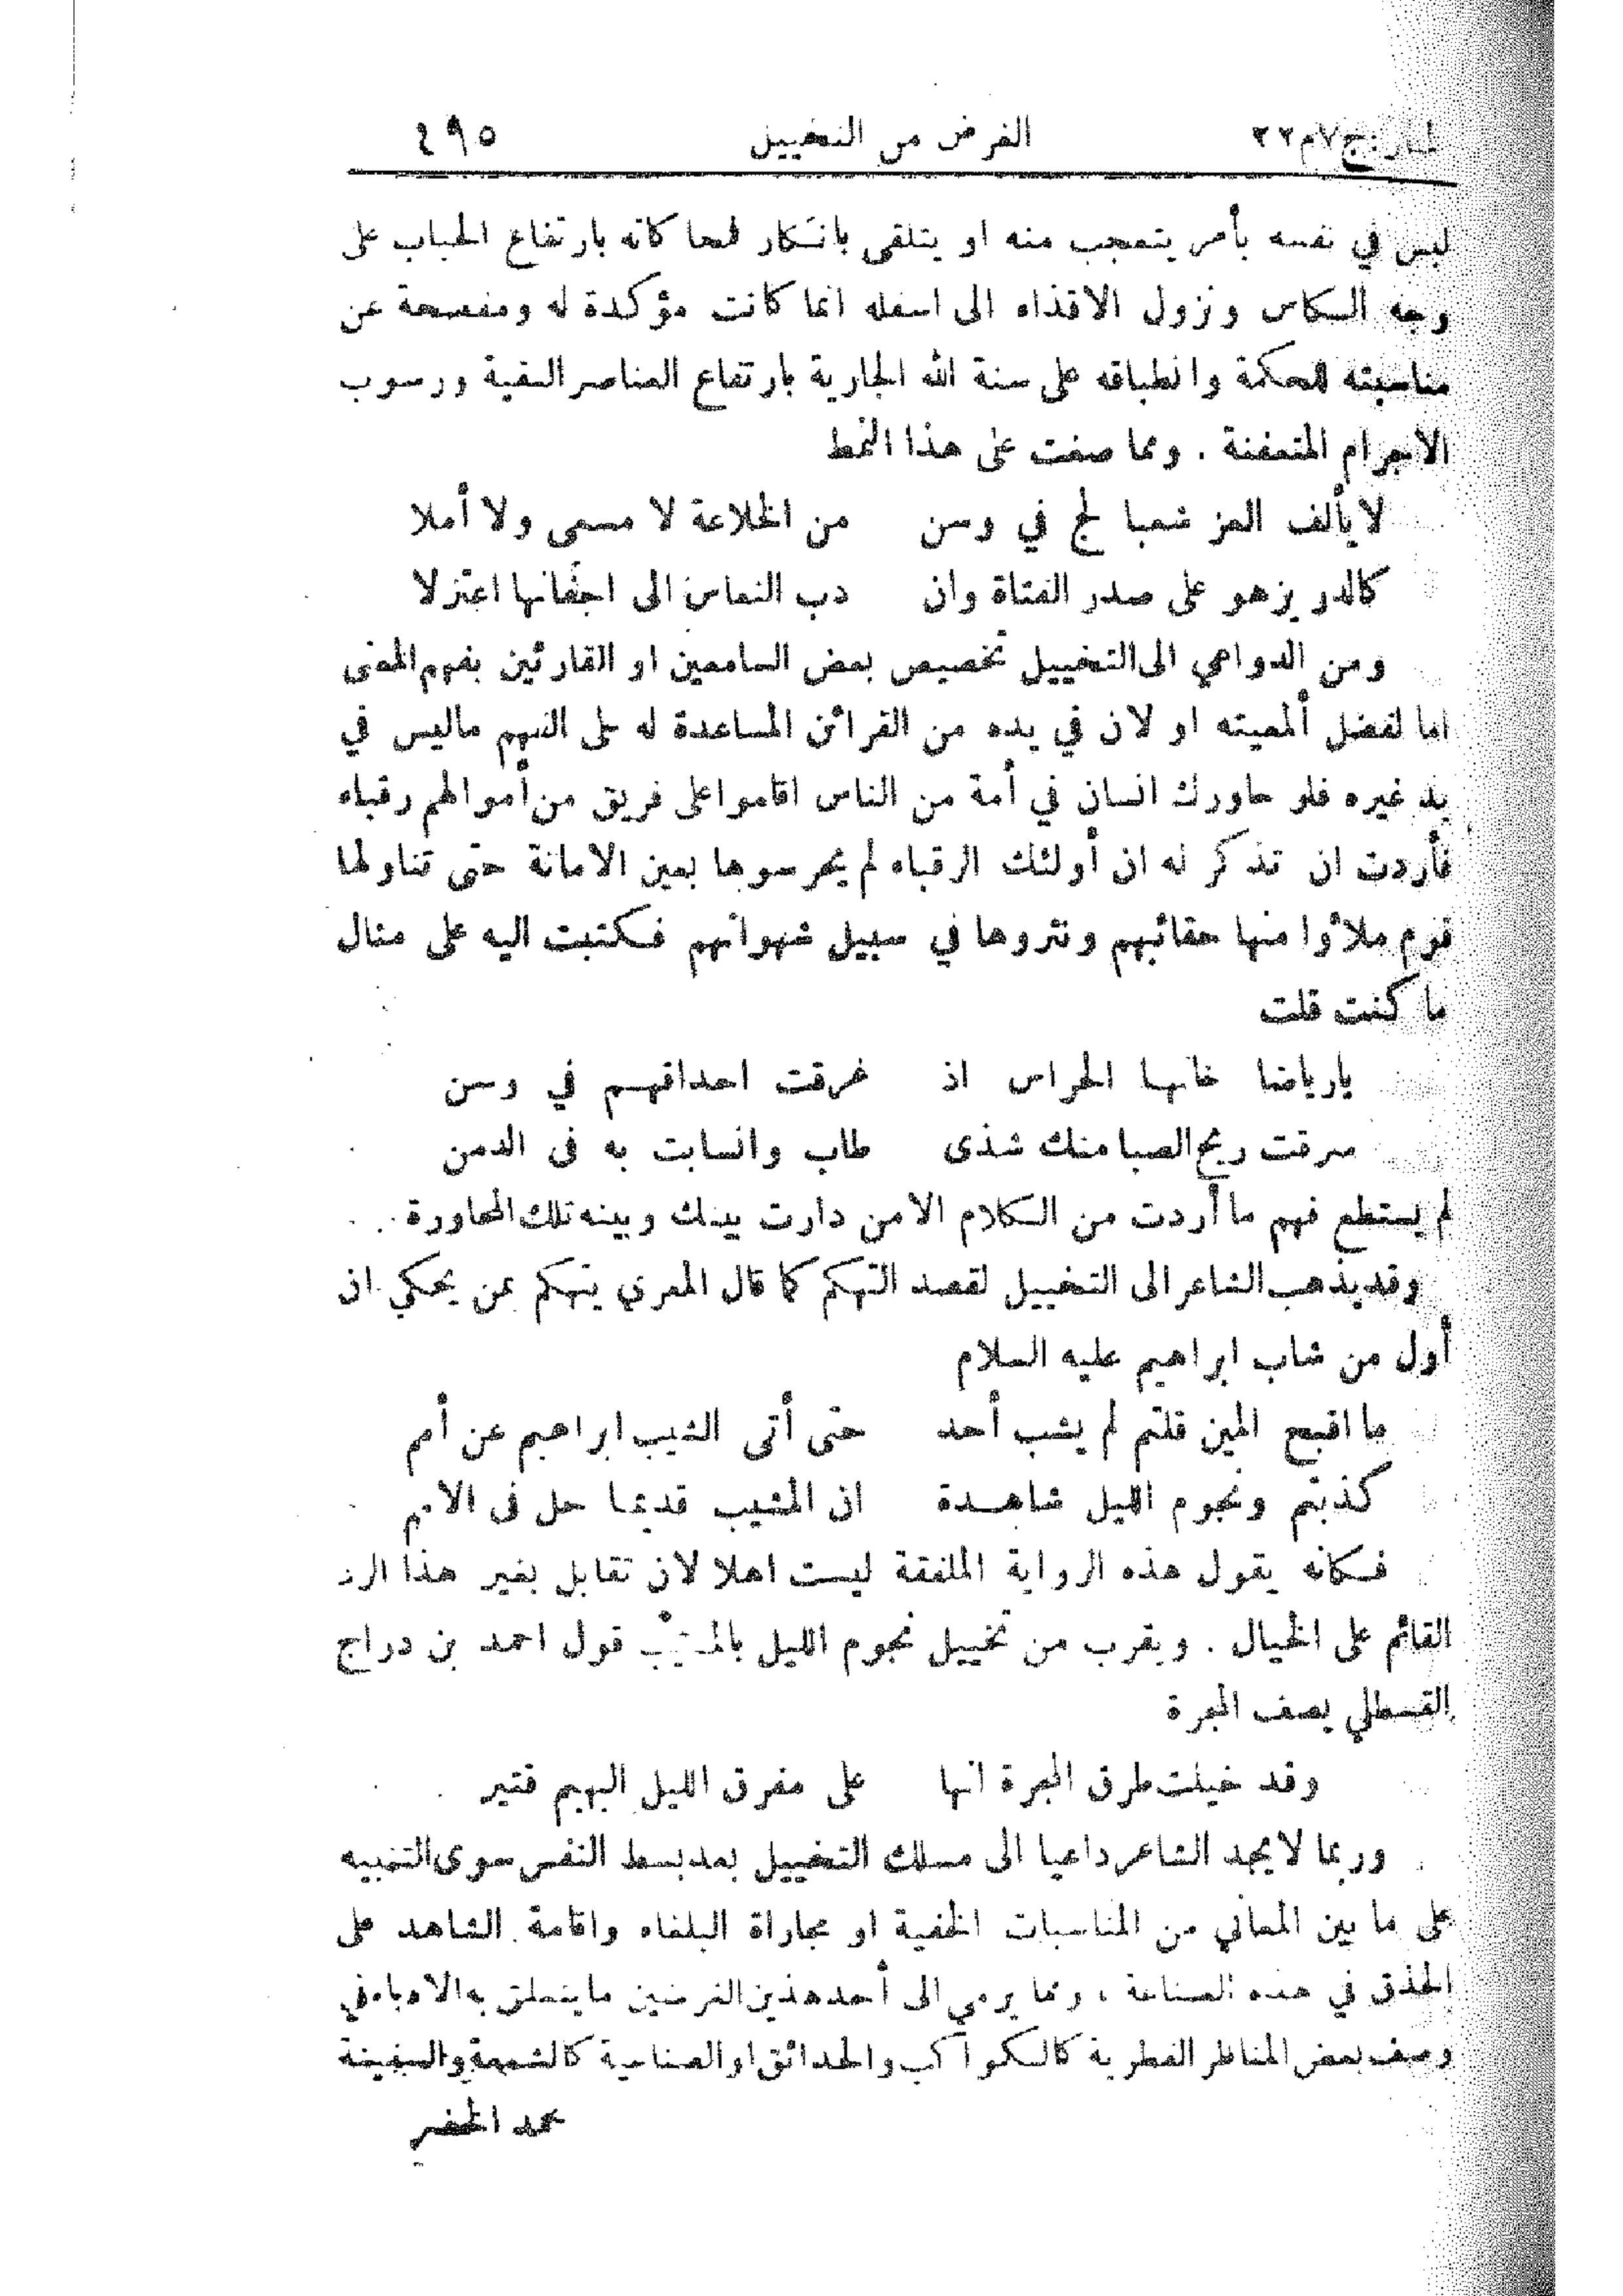 المنار: ج٧م٢٢ الغرض من التخييل ٤٩٥
ليس في نفسه بأمر يتعجب منه او يتلقى بانكار فمحا كاته بارتفاع الحباب على
وجه الكاس ونزول الاقذاء الى اسفله انما كانت مؤكدة له ومفصحة عن
مناسبته للحكمة وانطباقه على سنة الله الجارية بارتفاع العناصر النقية ورسوب
الاجرام المتعفنة . ومما صغت على هذا النمط
لا يألف العز شعبا لج في وسن من الخلاعة لا مسعى ولا أملا
كالدر يزهو على صدر الفتاة وان دب النعاس الى اجفانها اعتزلا
ومن الدواعي الى التخييل تخصيص بعض السامعين او القارئين بفهم المعنى
اما لفضل ألمعيته او لان في يده من القرائن المساعدة له على الفهم ماليس في
يد غيره فلو حاورك انسان في أمة من الناس اقاموا على فريق من أموالهم رقباء
فأردت ان تذكر له ان أولئك الرقباء لم يحرسوها بعين الامانة حتى تناولها
قوم ملأوا منها حقائبهم ونثروها في سبيل شهواتهم فكتبت اليه على مثال
ما كنت قلت
يارياضا خانها الحراس اذ غرقت احداقهم في وسن
سرقت ريح الصبا منك شذى طاب وانسابت به فى الدمن
لم يستطع فهم ما أردت من الكلام الا من دارت بينك وبينه تلك المحاورة .
وقد يذهب الشاعر الى التخييل لقصد التهكم كما قال المعري يتهكم بمن يحكي ان
أول من شاب ابراهيم عليه السلام
ما اقبح المين قلتم لم يشب أحد حتى أتى الشيب ابراهيم عن أمم
كذبتم ونجوم الليل شاهدة ان المشيب قديما حل فى الامم
فكانه يقول هذه الرواية الملفقة ليست اهلا لان تقابل بغير هذا الرد
القائم على الخيال . ويقرب من تخييل نجوم الليل بالمشيب قول احمد بن دراج
القسطلي يصف المجرة
وقد خيلت طرق المجرة انها على مفرق الليل البهيم قتير
وربما لا يجد الشاعر داعيا الى مسلك التخييل بعد بسط النفس سوى التنبيه
على ما بين المعاني من المناسبات الخفية او مجاراة البلغاء واقامة الشاهد على
الحذق في هذه الصناعة ، ومما يرمي الى أحد هذين الغرضين ما يتعلق به الادباء في
وصف بعض المناظر الفطرية كالكواكب والحدائق او الصناعية كالشمعة والسفينة
محمد الخضر